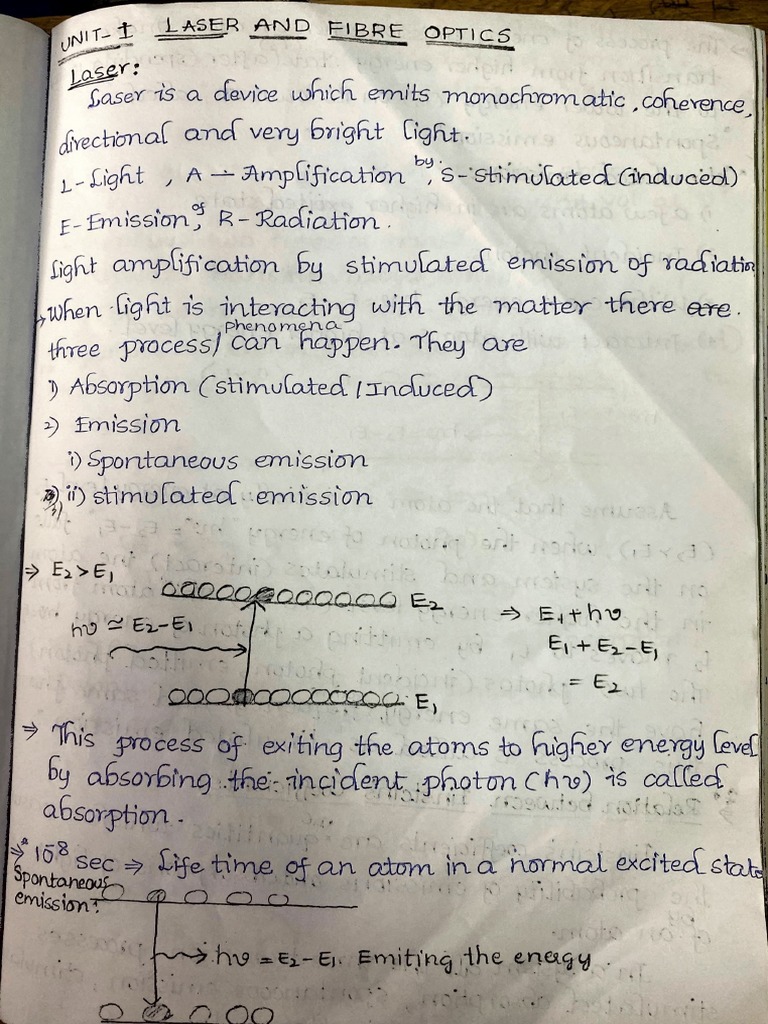 UNIT-I LASER AND FIBRE OPTICS
Laser:
Laser is a device which emits monochromatic, coherence,
directional and very bright light.
L-Light, A - Amplification by, S-Stimulated (induced)
E-Emission, of R-Radiation.
Light amplification by stimulated emission of radiation
→ When light is interacting with the matter there are.
three process/ phenomena can happen. They are
1) Absorption (stimulated / Induced)
2) Emission
i) Spontaneous emission
ii) stimulated emission
⇒ E₂ > E₁
E₂
⇒ E₁ + hν
hν ≃ E₂-E₁
E₁ + E₂ - E₁
= E₂
E₁
⇒ This process of exiting the atoms to higher energy level
by absorbing the incident photon (hν) is called
absorption.
→* 10⁻⁸ sec ⇒ Life time of an atom in a normal excited state
Spontaneous
emission:
hν = E₂-E₁. Emiting the energy.